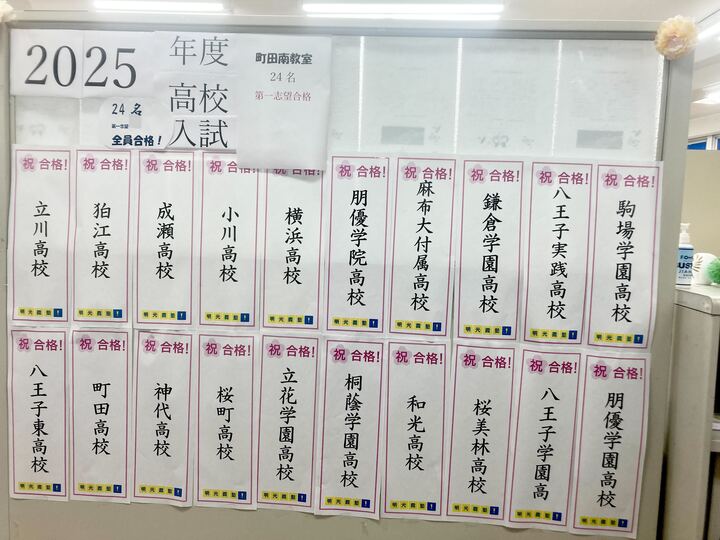 2025年度
高校
入試
24名
第一志望
全員合格！
町田南教室
24名
第一志望合格
祝 合格！
立川高校
明光義塾
祝 合格！
狛江高校
明光義塾
祝 合格！
成瀬高校
明光義塾
祝 合格！
小川高校
明光義塾
合格！
横浜高校
明光義塾
祝 合格！
朋優学院高校
明光義塾
祝 合格！
麻布大付属高校
明光義塾
祝 合格！
鎌倉学園高校
明光義塾
祝 合格！
八王子実践高校
明光義塾
祝 合格！
駒場学園高校
明光義塾
祝 合格！
八王子東高校
明光義塾
祝 合格！
町田高校
明光義塾
祝 合格！
神代高校
明光義塾
祝 合格！
桜町高校
明光義塾
祝 合格！
立花学園高校
明光義塾
祝 合格！
桐蔭学園高校
明光義塾
祝 合格！
和光高校
明光義塾
祝 合格！
桜美林高校
明光義塾
祝 合格！
八王子学園高
明光義塾
祝 合格！
朋優学園高校
明光義塾